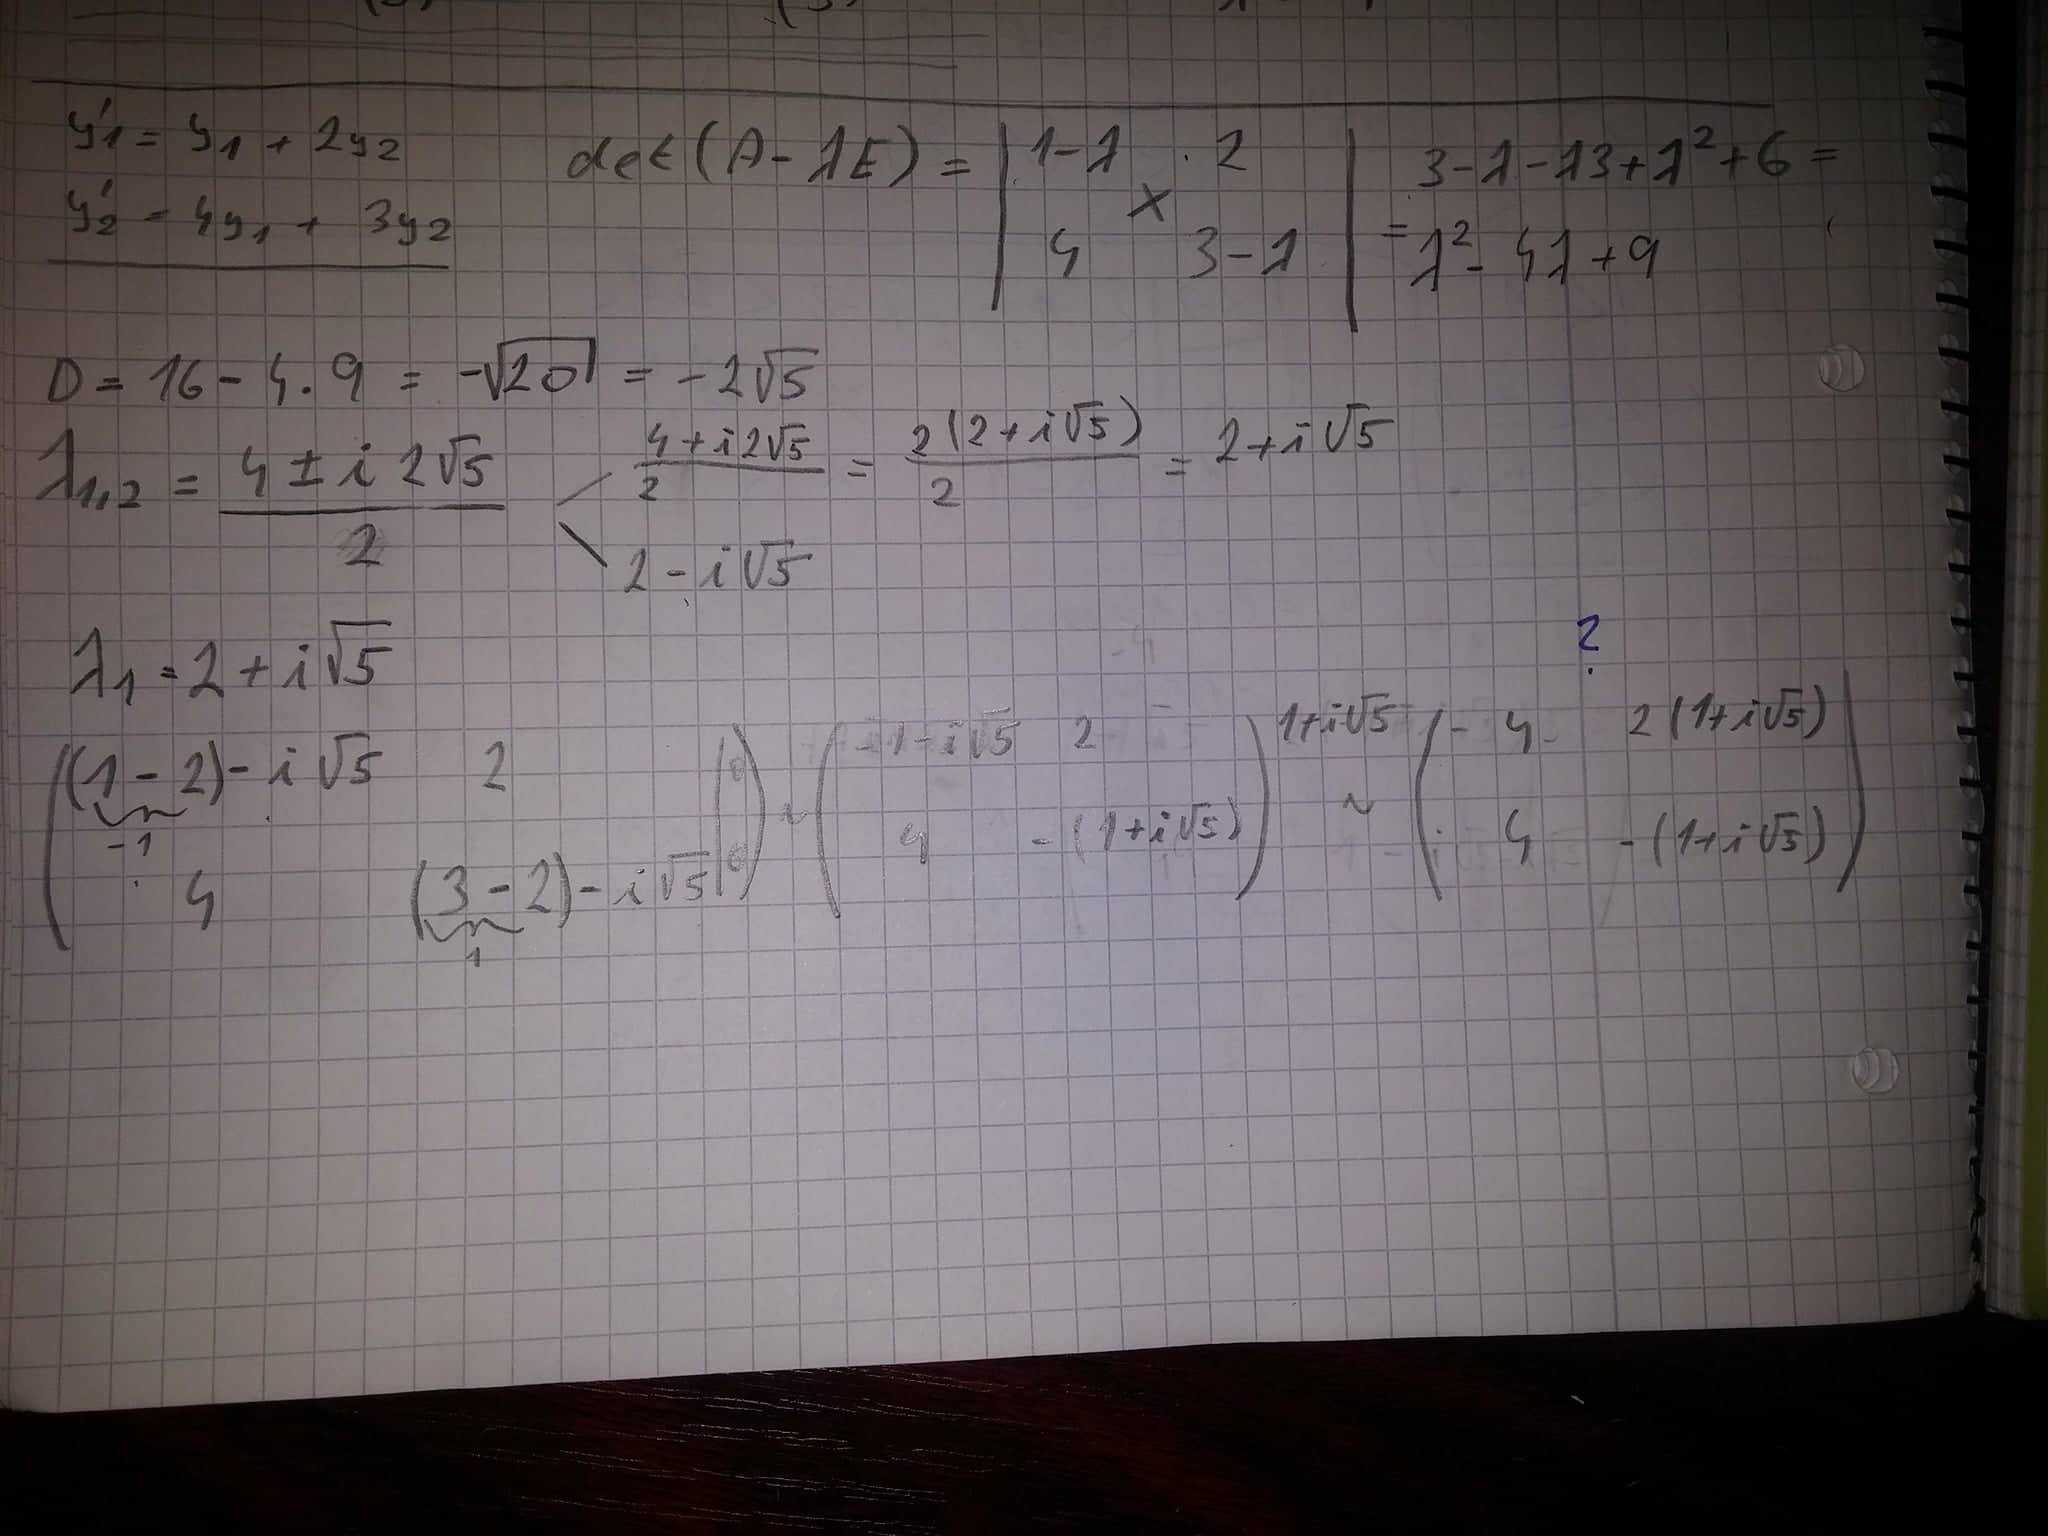 y'1 = y1 + 2y2
y'2 = 4y1 + 3y2
det(A-λE) = | 1-λ · 2 | 3-λ-λ3+λ²+6 =
× 
| 4 3-λ | = λ²-4λ+9
D = 16-4·9 = -√20 = -2√5
λ1,2 = (4 ± i2√5)/2
(4+i2√5)/2 = 2(2+i√5)/2 = 2+i√5
2-i√5
λ1 = 2+i√5
?
( (1-2)-i√5 2 | 0 ) ~ ( -1-i√5 2 ) 1+i√5 ( -4 2(1+i√5) )
-1
( 4 (3-2)-i√5 | 0 ) ( 4 -(1+i√5) ) ~ ( 4 -(1+i√5) )
1